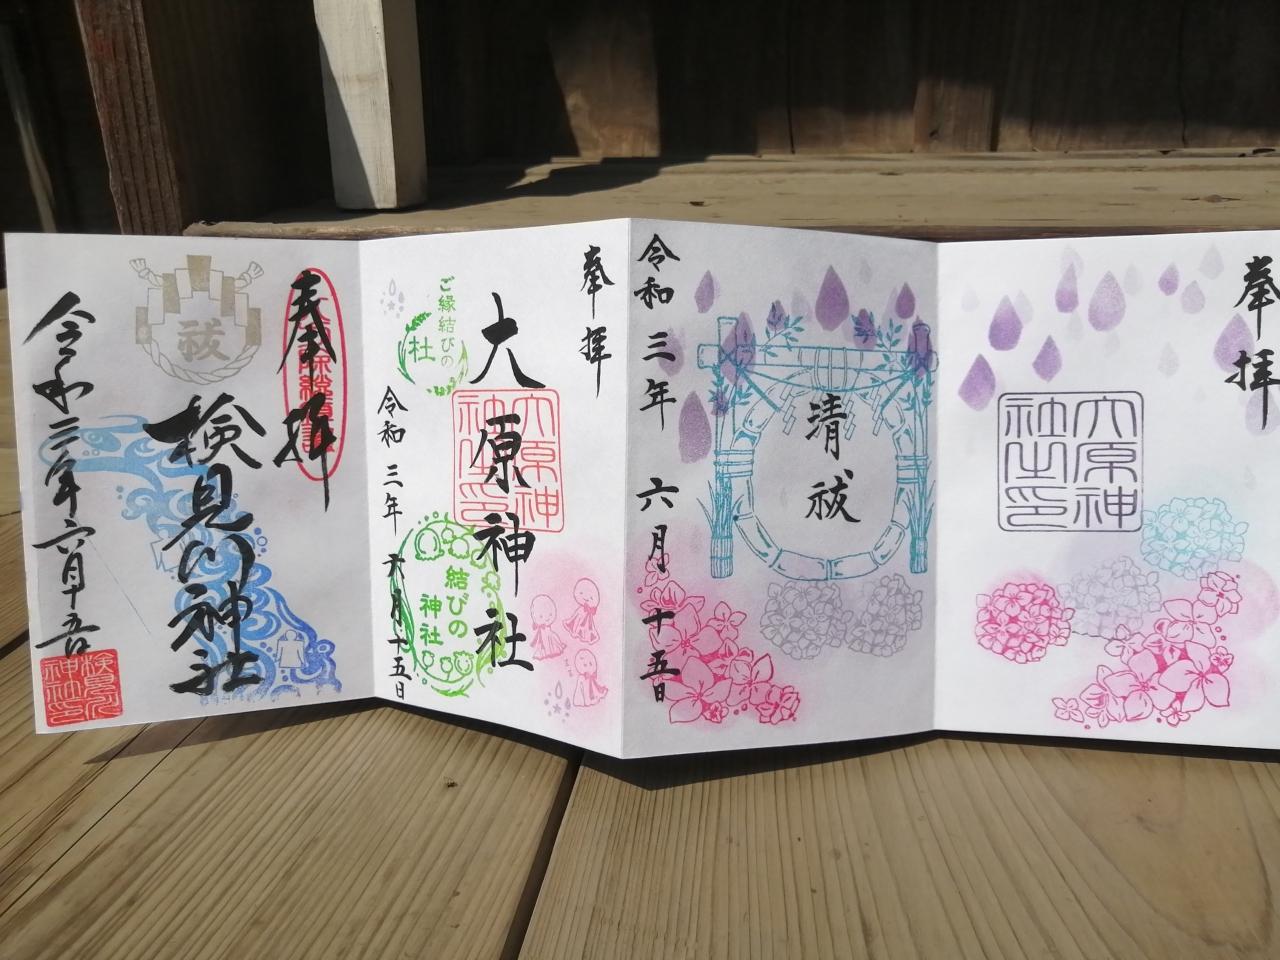 奉拝
祓
検見川神社
令和三年六月十五日
検見川
神社之印
奉拝
大原神社
大原神
社之印
ご縁結びの
杜
結びの
神社
令和三年 六月十五日
清祓
令和三年 六月十五日
奉拝
大原神
社之印